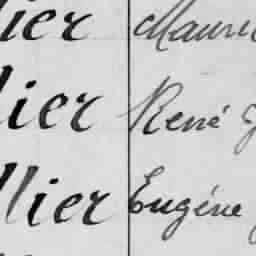 lier Mauri
lier René J
llier Eugéne J